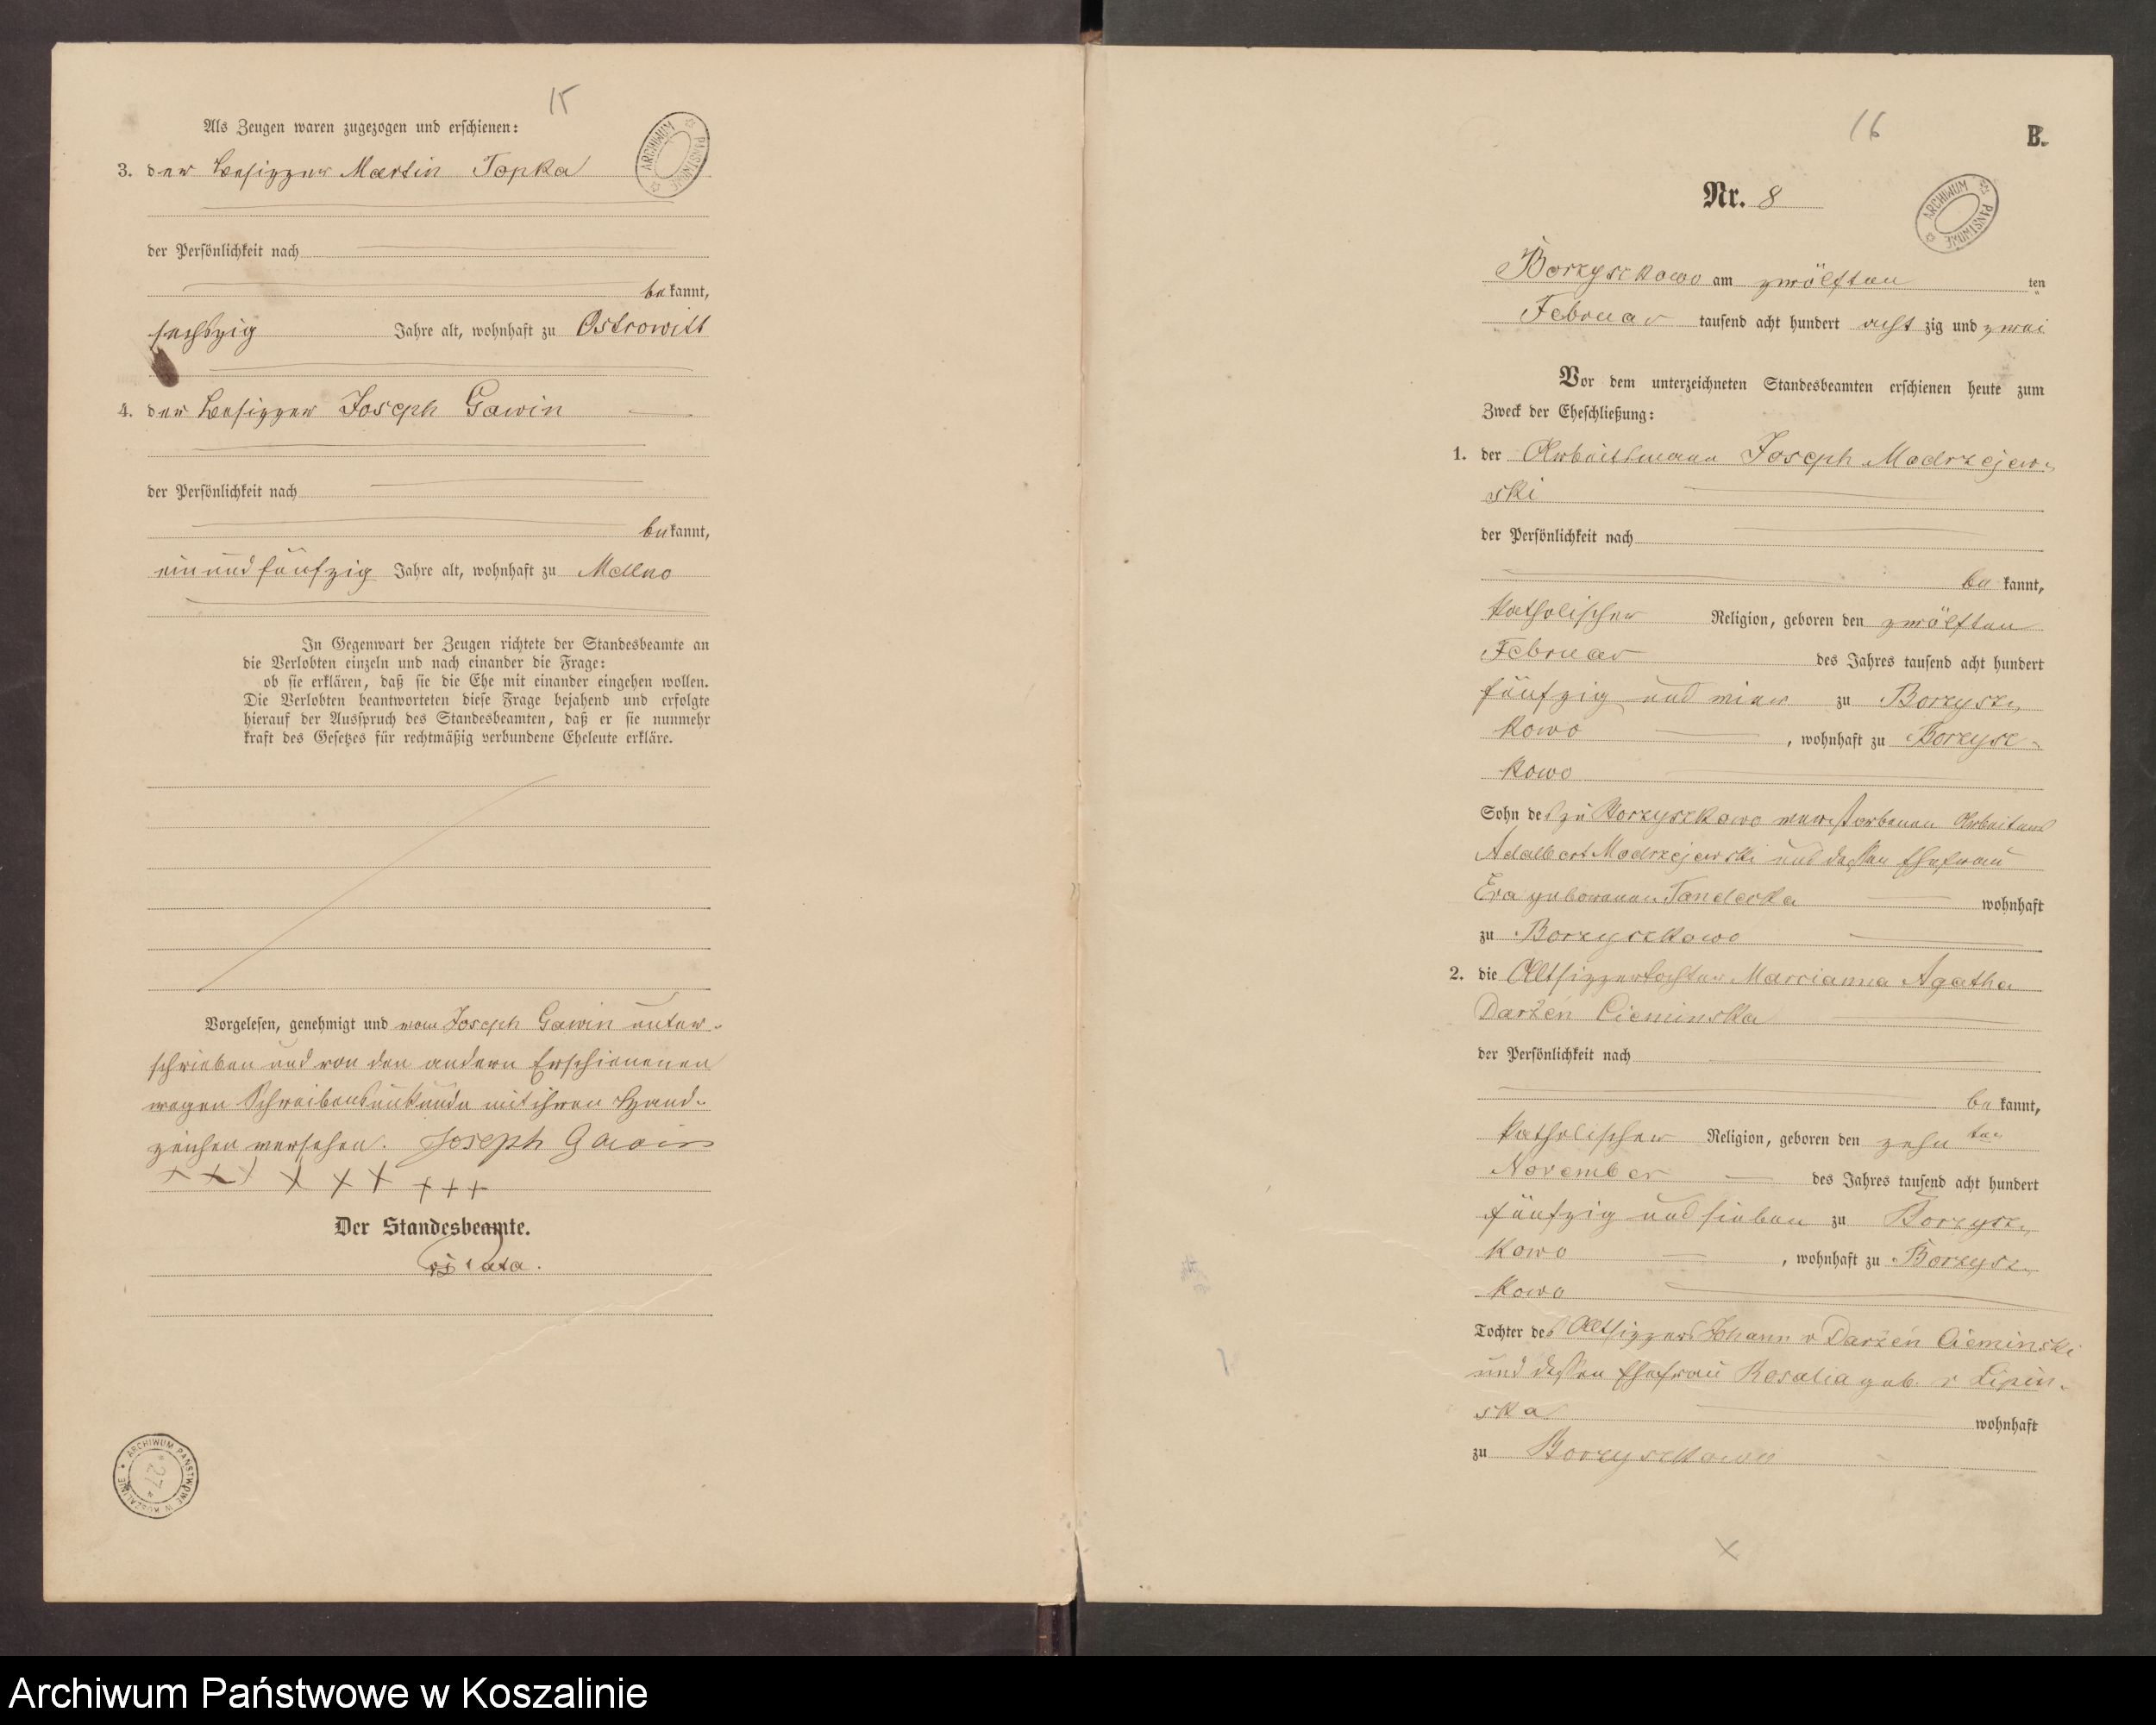 15
Als Zeugen waren zugezogen und erschienen:
3. der Besitzer Martin Topka
der Persönlichkeit nach
bekannt,
sechszig Jahre alt, wohnhaft zu Ostrowitt
4. der Besitzer Joseph Gawin
der Persönlichkeit nach
bekannt,
ein und fünfzig Jahre alt, wohnhaft zu Mellno
In Gegenwart der Zeugen richtete der Standesbeamte an
die Verlobten einzeln und nach einander die Frage:
ob sie erklären, daß sie die Ehe mit einander eingehen wollen.
Die Verlobten beantworteten diese Frage bejahend und erfolgte
hierauf der Ausspruch des Standesbeamten, daß er sie nunmehr
kraft des Gesetzes für rechtmäßig verbundene Eheleute erkläre.
Vorgelesen, genehmigt und vom Joseph Gawin unter-
schrieben und von den andern Erschienenen
wegen Schreibensunkunde mit ihren Hand-
zeichen versehen. Joseph Gawin
+++ +++ +++
Der Standesbeamte.
ARCHIWUM PAŃSTWOWE
ARCHIWUM PAŃSTWOWE W KOSZALINIE
* 27 *
16
B.
Nr. 8
ARCHIWUM PAŃSTWOWE
Borzyszkowo am zwölften ten
Februar tausend acht hundert acht zig und zwei
Vor dem unterzeichneten Standesbeamten erschienen heute zum
Zweck der Eheschließung:
1. der Arbeitsmann Joseph Modrzejew-
ski
der Persönlichkeit nach
be kannt,
katholischer Religion, geboren den zwölften
Februar des Jahres tausend acht hundert
fünfzig und vier zu Borzysz-
kowo , wohnhaft zu Borzysz-
kowo
Sohn des zu Borzyszkowo verstorbenen Arbeiters
Adalbert Modrzejewski und dessen Ehefrau
Eva geborenen Tandecka wohnhaft
zu Borzyszkowo
2. die Altsitzertochter Marcianna Agatha
Darżen Cieminska
der Persönlichkeit nach
be kannt,
katholischer Religion, geboren den zehn ten
November des Jahres tausend acht hundert
fünfzig und sieben zu Borzysz-
kowo , wohnhaft zu Borzysz-
kowo
Tochter des Altsitzers Johann v Darżen Cieminski
und dessen Ehefrau Rosalia geb. v Lipin-
ska wohnhaft
zu Borzyszkowo
Archiwum Państwowe w Koszalinie